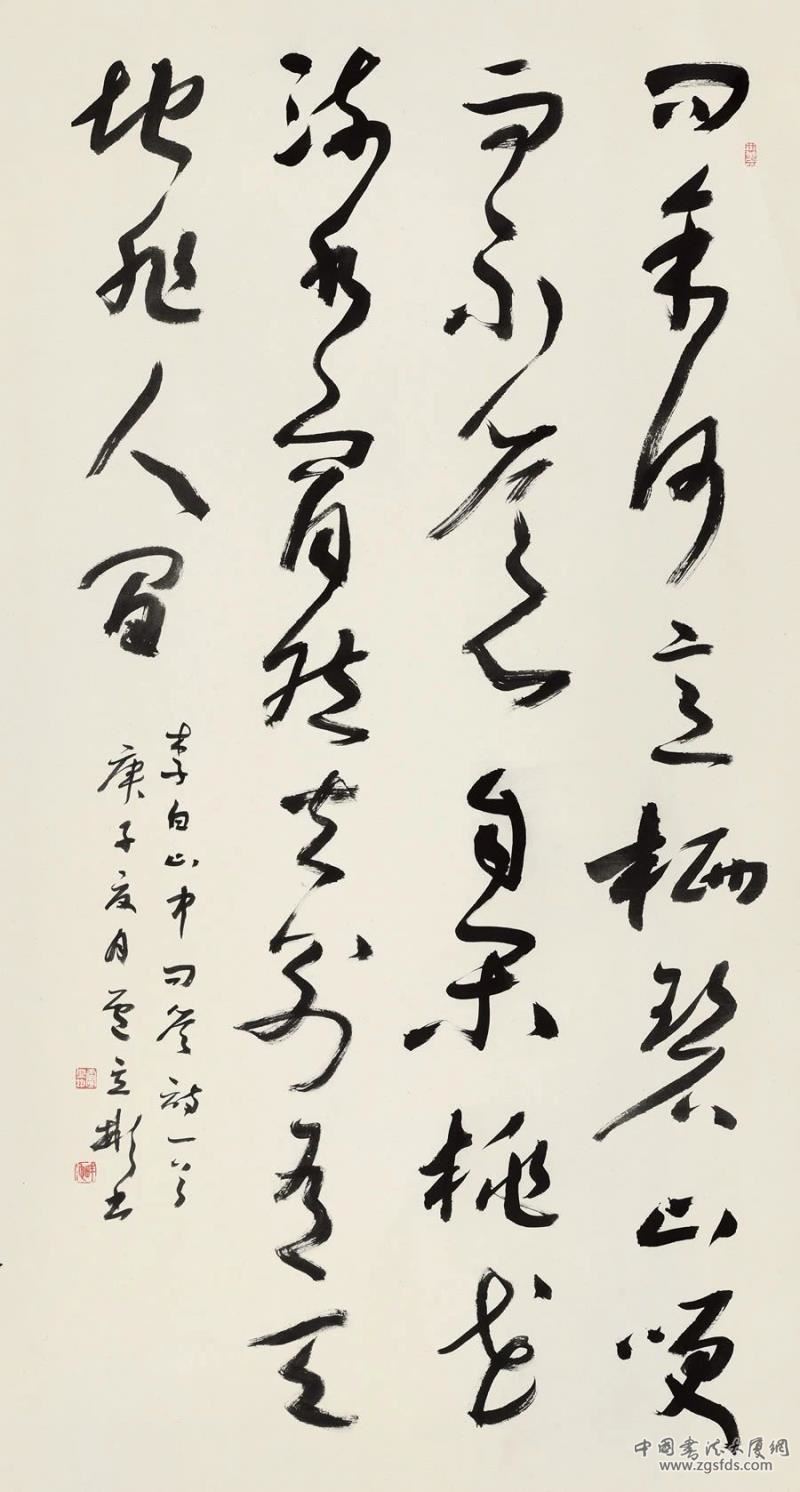 問余何意栖碧山咲
而不答心自閑桃花
流水窅然去别有天
地非人間
李白山中問答詩一首
庚子夏月 立彬书
中国书法大厦網
www.zgsfds.com